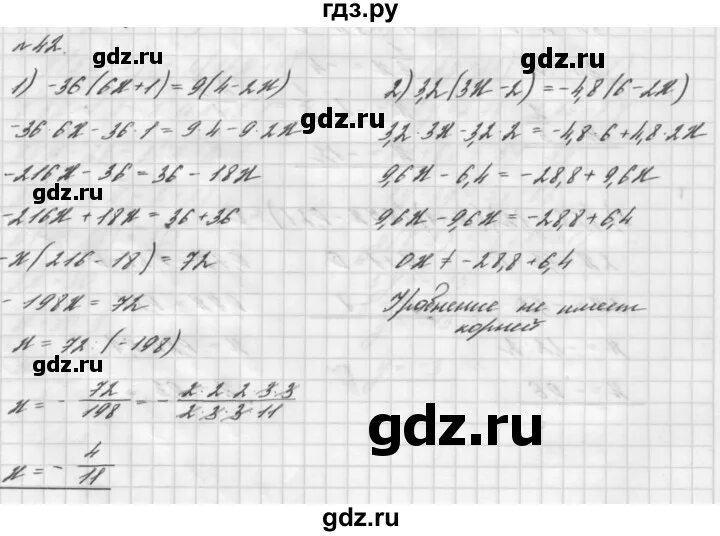 гдз.ру
№42.
gdz.ru
1) -36(6x+1)=9(4-2x)
-36·6x-36·1=9·4-9·2x
gdz.ru
-216x-36=36-18x
gdz.ru
-216x+18x=36+36
-x(216-18)=72
-198x=72
x=72:(-198)
gdz.ru
x=-72/198=-2·2·2·3·3/2·3·3·11
x=-4/11
2) 3,2(3x-2)=-4,8(6-2x)
gdz.ru
3,2·3x-3,2·2=-4,8·6+4,8·2x
9,6x-6,4=-28,8+9,6x
gdz.ru
9,6x-9,6x=-28,8+6,4
0x≠-28,8+6,4
Уравнение не имеет
корней
gdz.ru
gdz.ru